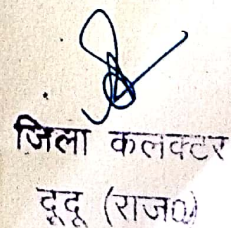 जिला कलक्टर
दूदू (राज०)